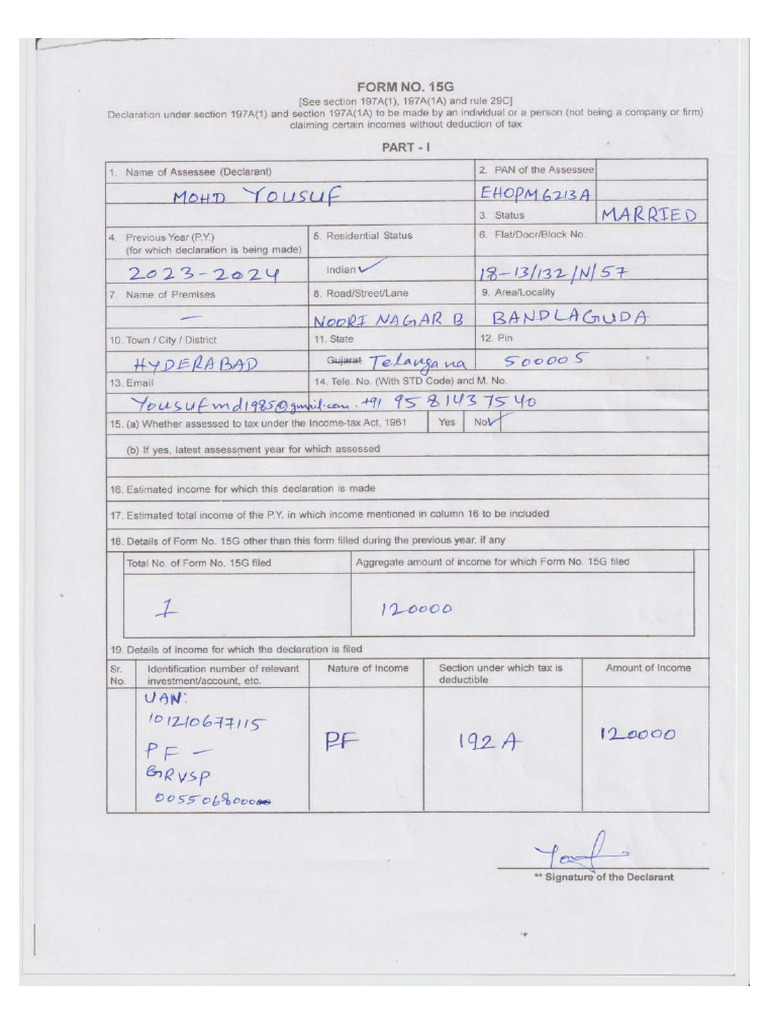 FORM NO. 15G
[See section 197A(1), 197A(1A) and rule 29C]
Declaration under section 197A(1) and section 197A(1A) to be made by an individual or a person (not being a company or firm)
claiming certain incomes without deduction of tax
PART - I
1. Name of Assessee (Declarant)
MOHD YOUSUF
2. PAN of the Assessee
EHOPM6213A
3. Status
MARRIED
4. Previous Year (P.Y.)
(for which declaration is being made)
2023-2024
5. Residential Status
Indian ✓
6. Flat/Door/Block No.
18-13/132/N/57
7. Name of Premises
—
8. Road/Street/Lane
NOORI NAGAR B
9. Area/Locality
BANDLAGUDA
10. Town / City / District
HYDERABAD
11. State
Gujarat Telangana
12. Pin
500005
13. Email
14. Tele. No. (With STD Code) and M. No.
Yousufmd1985@gmail.com. +91 9581437540
15. (a) Whether assessed to tax under the Income-tax Act, 1961 Yes No ✓
(b) If yes, latest assessment year for which assessed
16. Estimated income for which this declaration is made
17. Estimated total income of the P.Y. in which income mentioned in column 16 to be included
18. Details of Form No. 15G other than this form filled during the previous year, if any
Total No. of Form No. 15G filed
Aggregate amount of income for which Form No. 15G filed
1
120000
19. Details of income for which the declaration is filed
Sr.
No.
Identification number of relevant
investment/account, etc.
Nature of Income
Section under which tax is
deductible
Amount of Income
UAN:
101210677115
PF —
GRVSP
PF
192A
120000
** Signature of the Declarant